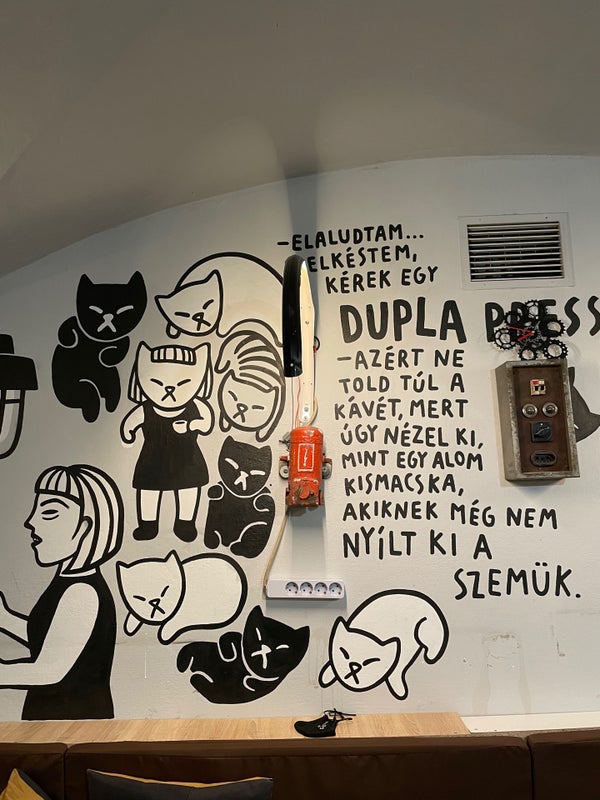 -ELALUDTAM...
ELKÉSTEM,
KÉREK EGY
DUPLA PRESS
-AZÉRT NE
TOLD TÚL A
KÁVÉT, MERT
ÚGY NÉZEL KI,
MINT EGY ALOM
KISMACSKA,
AKIKNEK MÉG NEM
NYÍLT KI A
SZEMÜK.